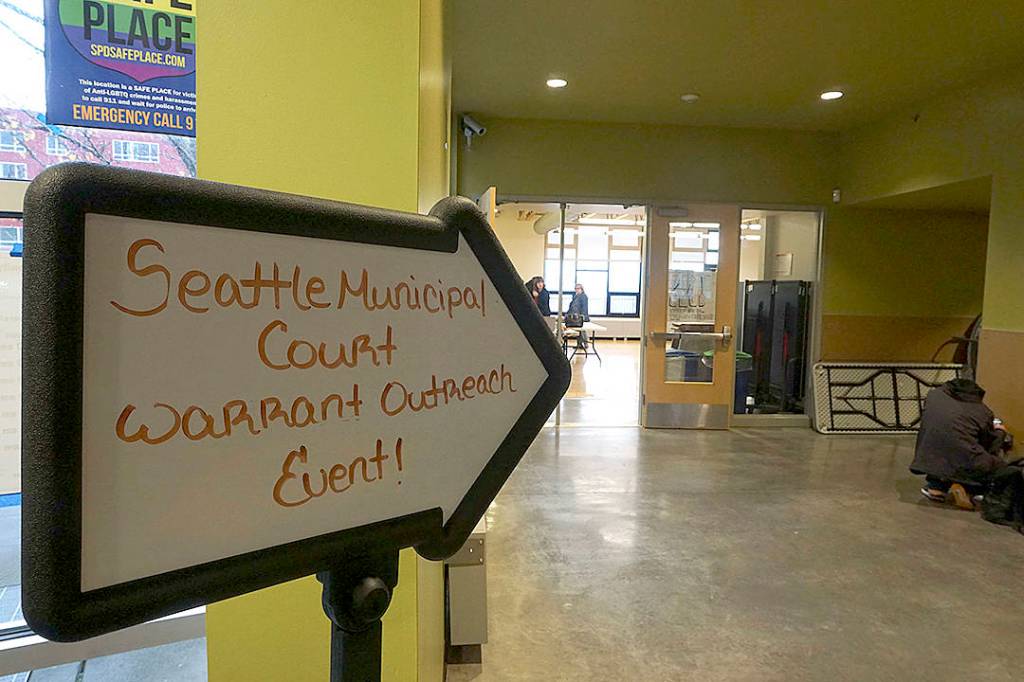 PLACE
SPDSAFEPLACE.COM
This location is a SAFE PLACE for
of Anti-LGBTQ crimes and
to call 911 and wait for police to
EMERGENCY CALL 9
Seattle Municipal
Court
Warrant Outreach
Event!